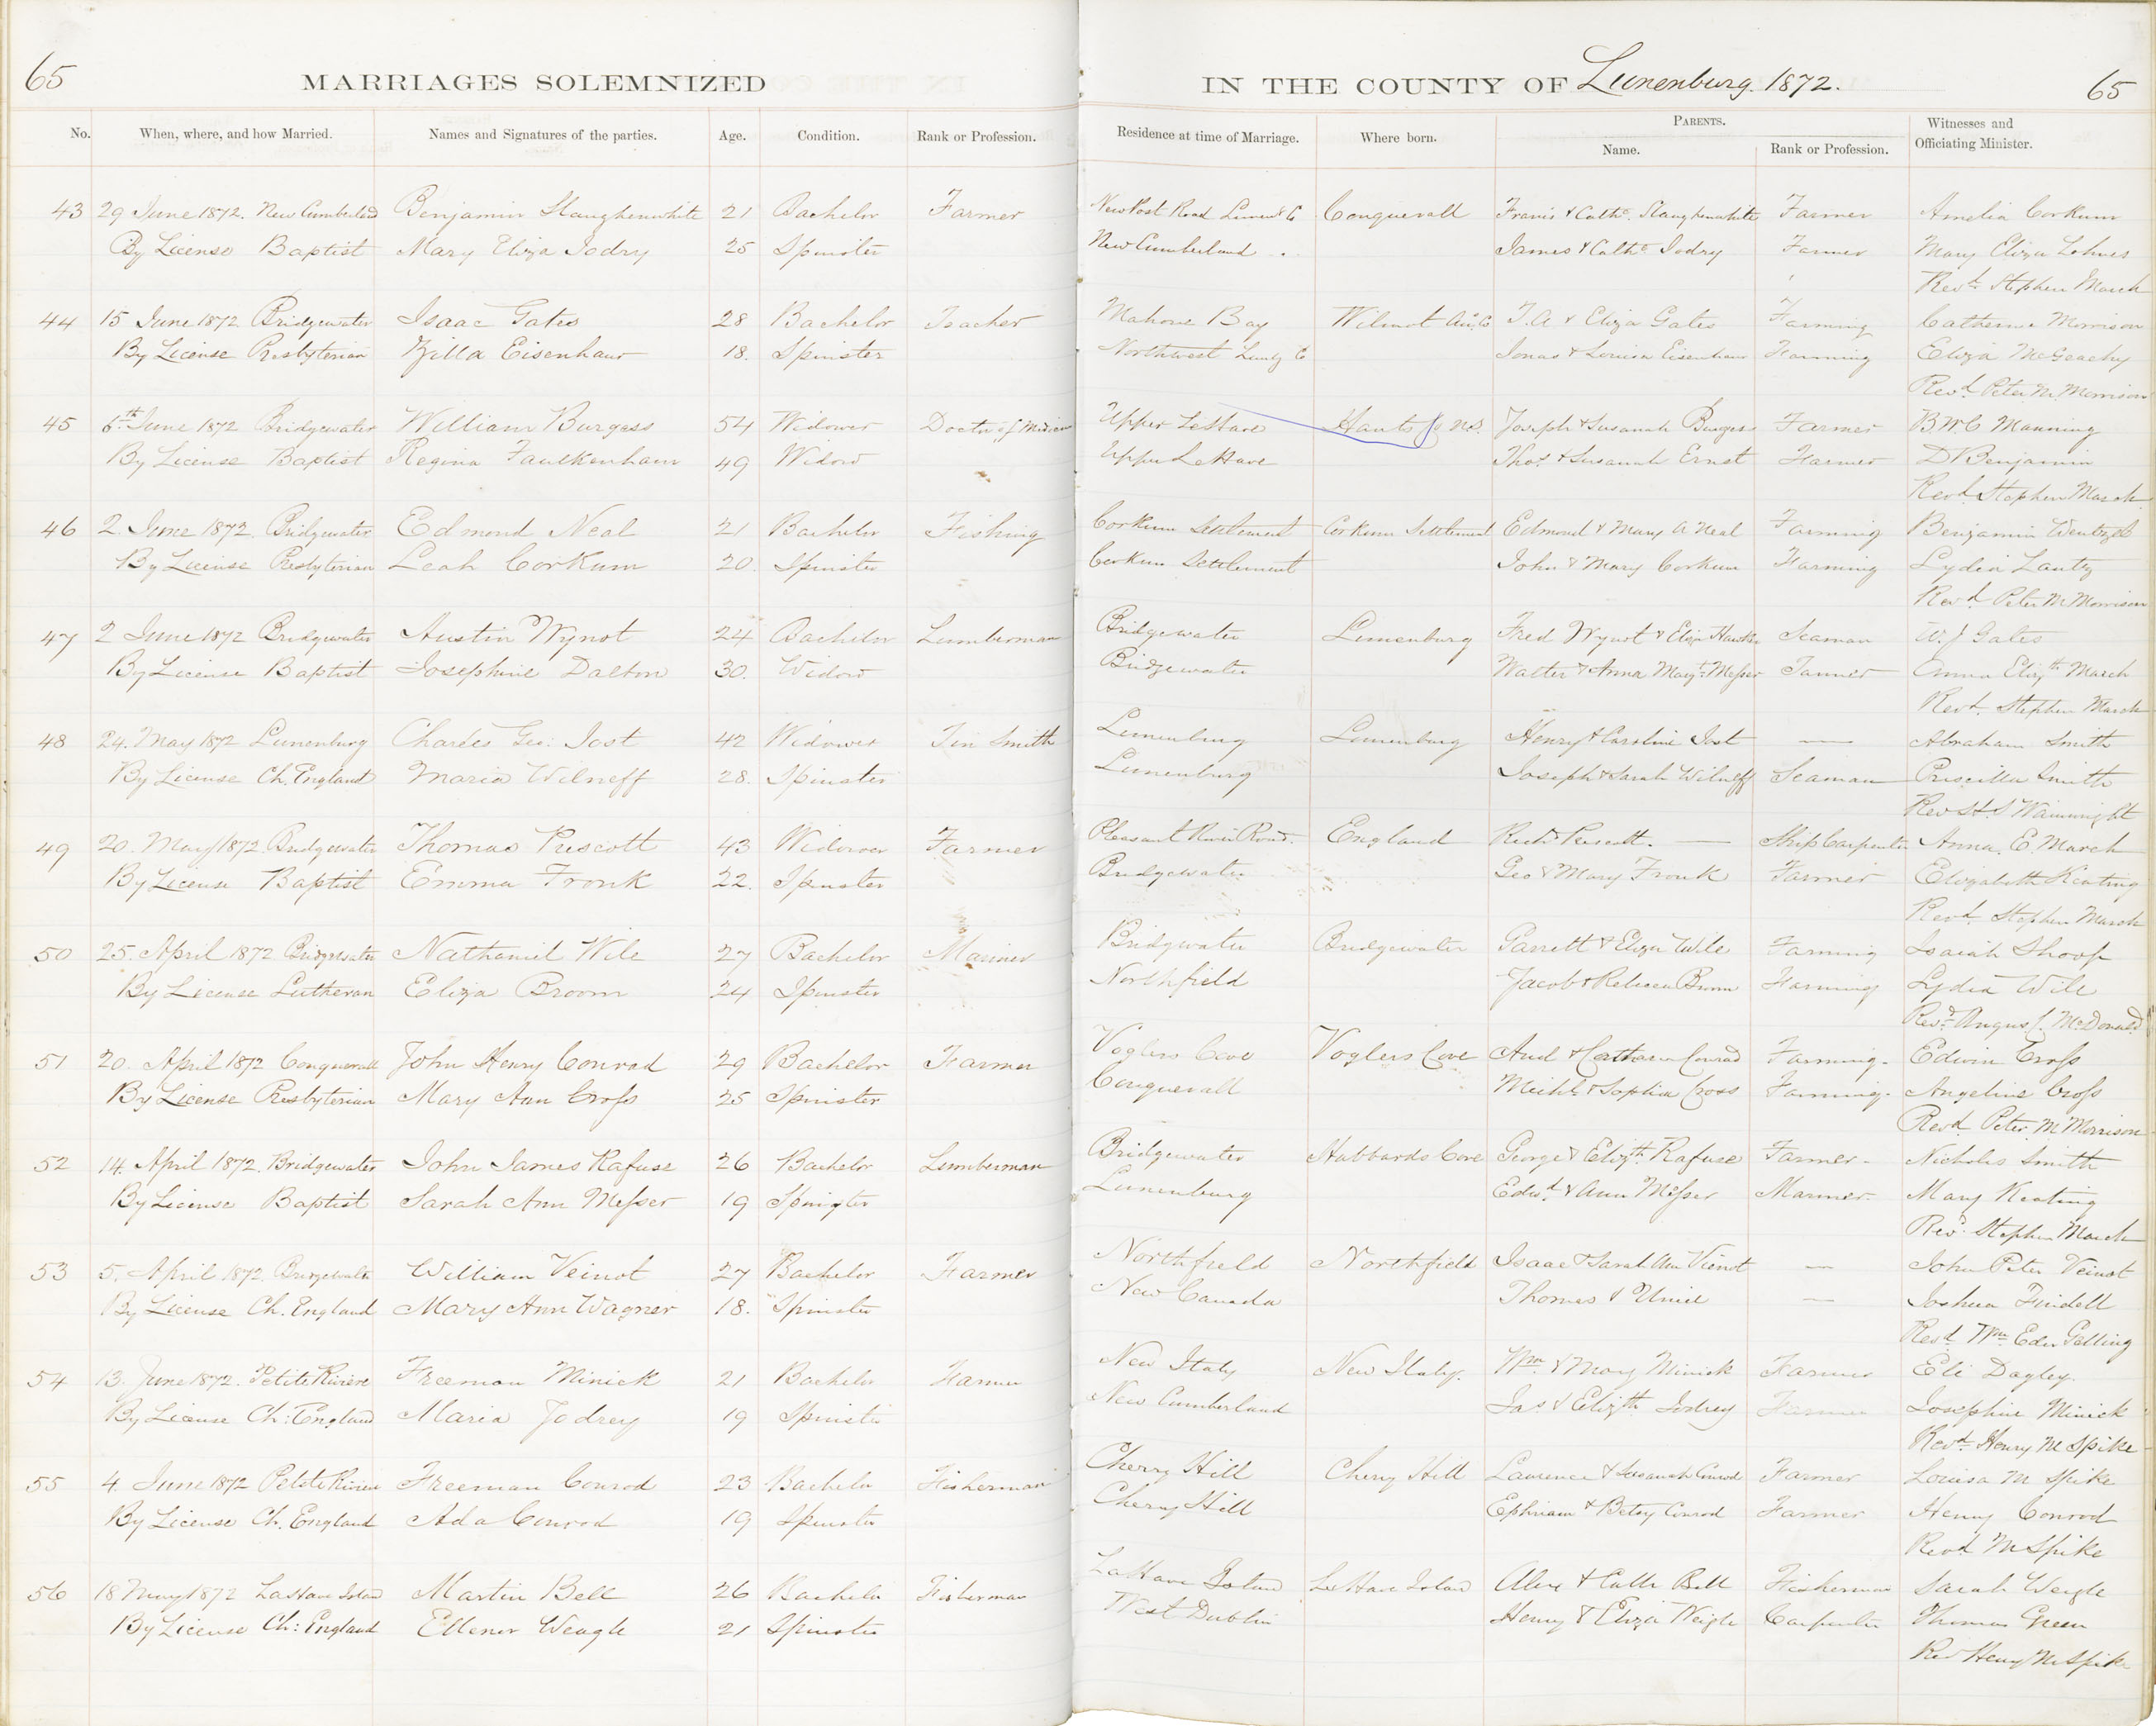 65 MARRIAGES SOLEMNIZED IN THE COUNTY OF Lunenburg. 1872. 65
No. When, where, and how Married. Names and Signatures of the parties. Age. Condition. Rank or Profession. Residence at time of Marriage. Where born. PARENTS. Name. Rank or Profession. Witnesses and Officiating Minister.
43 29 June 1872. New Cumberland Benjamin Slaughenwhite 21 Bachelor Farmer New Post Road Conquerall Francis & Cathe. Slaughenwhite Farmer Amelia Corkum
By License Baptist Mary Eliza Jodry 25 Spinster New Cumberland James & Cathe Jodry Farmer Mary Eliza Lohnes
Revd. Stephen March
44 15 June 1872 Bridgewater Isaac Gates 28 Bachelor Teacher Mahone Bay Wilmot An. Co T. A & Eliza Gates Farming Catherine Morrison
By License Presbyterian Zilla Eisenhaur 18. Spinster Northwest Lunbg Co Jonas & Louisa Eisenhaur Farming Eliza McGeachy
Revd. Peter M Morrison
45 6th June 1872 Bridgewater William Burgess 54 Widower Doctor of Medicine Upper LeHave Hants Co N.S. Joseph & Susanah Burgess Farmer B.W.C Manning
By License Baptist Regina Faulkenham 49 Widow Upper LeHave Thos & Susanah Ernst Farmer D Benjamin
Revd. Stephen March
46 2. June 1872. Bridgewater Edmond Neal 21 Bachelor Fishing Corkum Settlement Corkum Settlement Edmond & Mary A Neal Farming Benjamin Wentzel
By License Presbyterian Leah Corkum 20. Spinster Corkum Settlement John & Mary Corkum Farming Lydia Lantz
Revd. Peter M Morrison
47 2 June 1872 Bridgewater Austin Wynot 24 Bachelor Lumberman Bridgewater Lunenburg Fred Wynot & Eliza Seaman W. J Gates
By License Baptist Josephine Dalton 30. Widow Bridgewater Walter & Anna Margt. Messer Farmer Emma Elizth March
Revd. Stephen March
48 24. May 1872 Lunenburg Charles Geo: Jost 42 Widower Tin Smith Lunenburg Lunenburg Henry & Caroline Jost — Abraham Smith
By License Ch. England Maria Wilneff 28. Spinster Lunenburg Joseph & Sarah Wilneff Seaman Priscilla Smith
Rev Wainwright
49 20. May 1872 Bridgewater Thomas Prescott 43 Widower Farmer Pleasant River Road. England Richd Prescott. — Ship Carpenter Anna. E. March
By License Baptist Emma Fronk 22. Spinster Bridgewater Geo & Mary Fronk Farmer Elizabeth Keating
Revd. Stephen March
50 25. April 1872 Bridgewater Nathaniel Wile 27 Bachelor Mariner Bridgwater Bridgewater Garrett & Eliza Wile Farming Isaiah Shoop
By License Lutheran Eliza Broom 24 Spinster Northfield Jacob & Rebecca Broom Farming Lydia Wile
Revd. Angus McDonald
51 20. April 1872 Conquerall John Henry Conrad 29 Bachelor Farmer Voglers Cove Voglers Cove And & Catharin Conrad Farming. Edwin Cross
By License Presbyterian Mary Ann Cross 25 Spinster Conquerall Michl & Sophia Cross Farming. Angeline Cross
Revd Peter. M Morrison
52 14. April 1872. Bridgewater John James Rafuse 26 Bachelor Lumberman Bridgewater Hubbards Cove George & Elizth. Rafuse Farmer. Nicholis Smith
By License Baptist Sarah Ann Messer 19 Spinster Lunenburg Edwd. & Ann Messer Mariner. Mary Keating
Revd. Stephen March
53 5. April 1872. Bridgewater William Veinot 27 Bachelor Farmer Northfield Northfield Isaac & Sarah Ann Vienot — John Peter Veinot
By License Ch. England Mary Ann Wagner 18. Spinster New Canada Thomas & Unice — Joshua Findell
Revd. Wm Edw Gelling
54 13. June 1872. Petite Riviere Freeman Minick 21 Bachelor Farmer New Italy New Italy. Wm & Mary Minick Farmer Eli Dagley.
By License Ch: England Maria Jodrey 19 Spinster New Cumberland Jas & Elizth Jodrey Farmer Josephine Minick
Revd. Henry M Spike
55 4. June 1872 Petite Riviere Freeman Conrod 23 Bachelor Fisherman Cherry Hill Cherry Hill Laurence & Susanah Conrod Farmer Louisa M Spike
By License Ch. England Ada Conrod 19 Spinster Cherry Hill Ephriam & Betsy Conrod Farmer Henry Conrod
Revd. M Spike
56 18 May 1872 LaHave Island Martin Bell 26 Bachelor Fisherman LaHave Island LaHave Island & Cath Bell Fisherman Sarah Weagle
By License Ch: England Ellenor Weagle 21 Spinster West Dublin Henry & Eliza Weigle Carpenter Thomas Green
Rev Henry M Spike